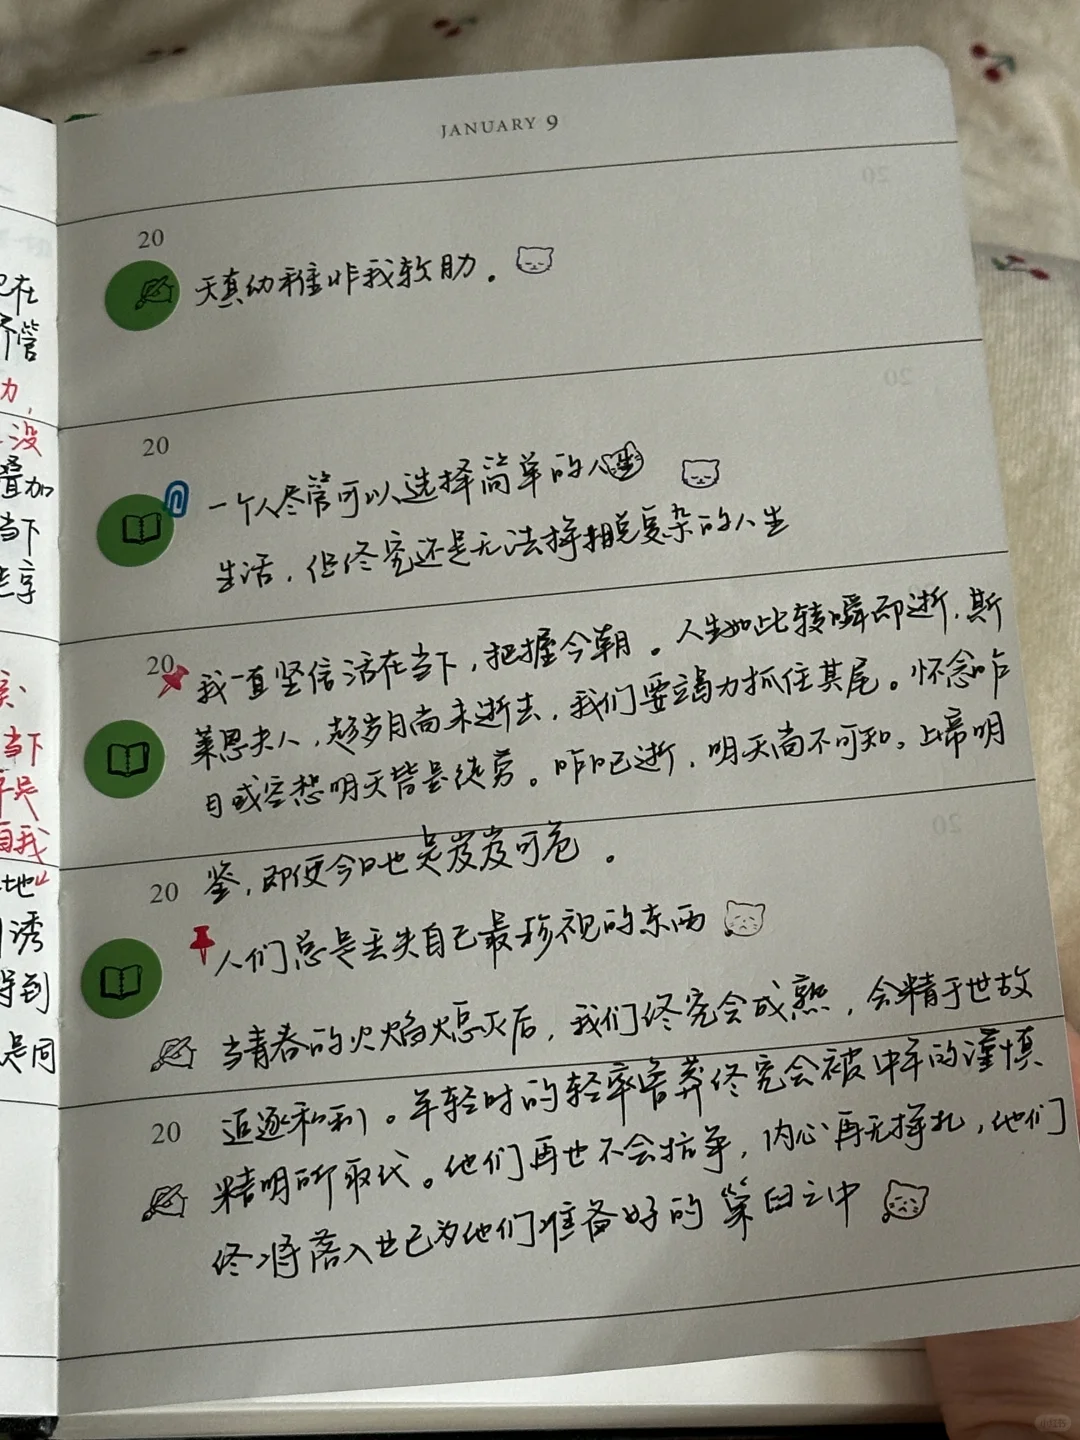 JANUARY 9
20
天真幼稚非我救助。
20
一个人尽管可以选择简单的人生
生活，但终究还是无法摆脱复杂的人生
20
我一直坚信活在当下，把握今朝。人生如此转瞬即逝，斯
莱恩夫人，趁岁月尚未逝去，我们要竭力抓住其尾。怀念昨
日或空想明天皆是徒劳。昨已逝，明天尚不可知。上帝明
20
鉴，即便今日也是岌岌可危。
人们总是丢失自己最珍视的东西
当青春的火焰熄灭后，我们终究会成熟，会精于世故
20
追逐和利。年轻时的轻率鲁莽终究会被中年的谨慎
精明所取代。他们再也不会抗争，内心再无挣扎，他们
终将落入世已为他们准备好的窠臼之中
己在
不管
力，
没
叠加
当下
当下
自我
地
诱
得到
是同